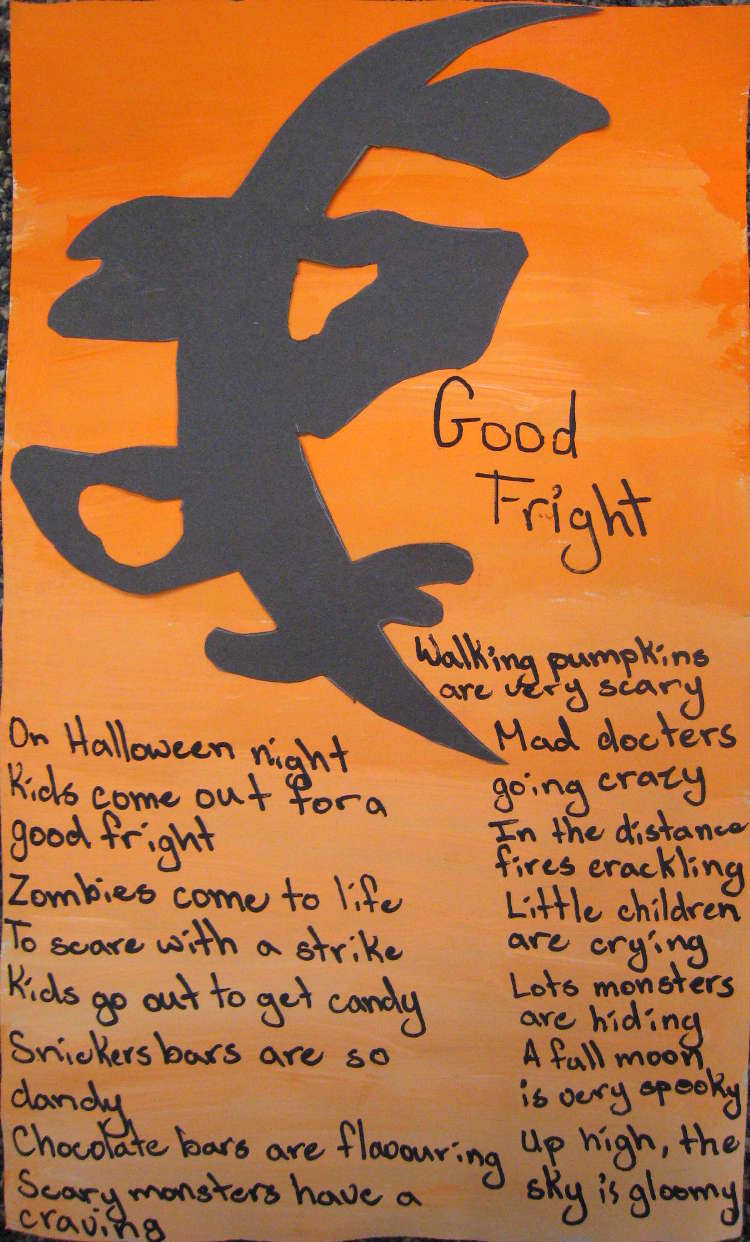 Good
Fright
On Halloween night
Kids come out for a
good fright
Zombies come to life
To scare with a strike
Kids go out to get candy
Snickers bars are so
dandy
Chocolate bars are flavouring
Scary monsters have a
craving
Walking pumpkins
are very scary
Mad docters
going crazy
In the distance
fires crackling
Little children
are crying
Lots monsters
are hiding
A full moon
is very spooky
Up high, the
sky is gloomy